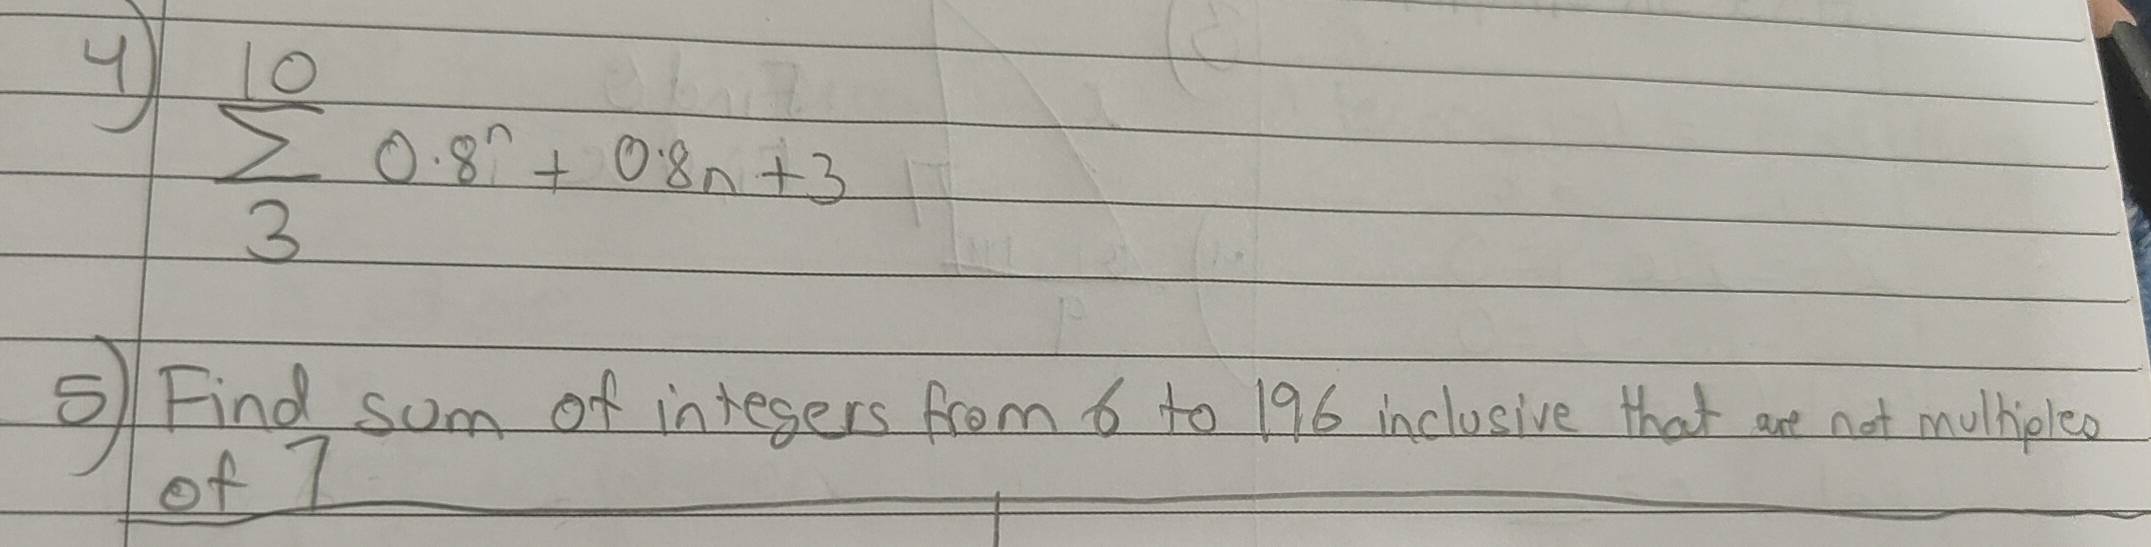 4) 10
∑ 0.8ⁿ + 0.8n + 3
3
5) Find sum of integers from 6 to 196 inclusive that are not multiples
of 7